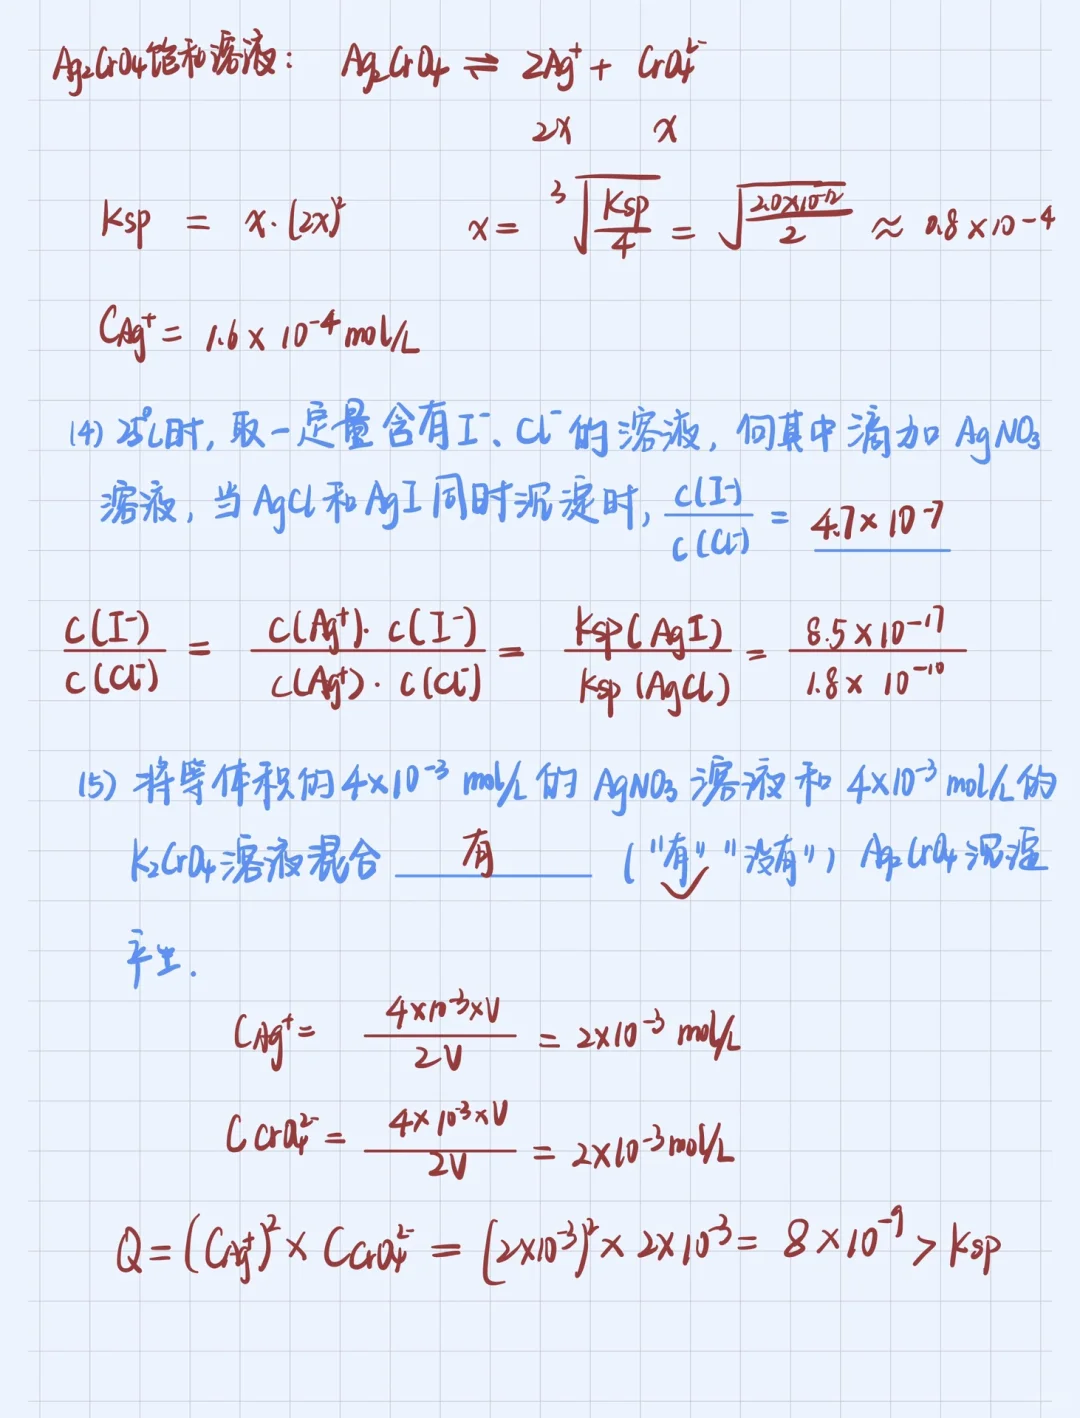 Ag₂CrO₄饱和溶液: Ag₂CrO₄ ⇌ 2Ag⁺ + CrO₄²⁻
2x x
Ksp = x·(2x)² x = ³√(Ksp/4) = √(2.0×10⁻¹²/2) ≈ 0.8×10⁻⁴
CAg⁺ = 1.6×10⁻⁴ mol/L
(4) 25℃时, 取一定量含有I⁻、Cl⁻的溶液, 向其中滴加 AgNO₃
溶液, 当AgCl和AgI同时沉淀时, c(I⁻)/c(Cl⁻) = 4.7×10⁻⁷
c(I⁻)/c(Cl⁻) = c(Ag⁺)·c(I⁻)/c(Ag⁺)·c(Cl⁻) = Ksp(AgI)/Ksp(AgCl) = 8.5×10⁻¹⁷/1.8×10⁻¹⁰
(5) 将等体积的4×10⁻³ mol/L的 AgNO₃溶液和 4×10⁻³ mol/L的
K₂CrO₄溶液混合 有 ("有" "没有") Ag₂CrO₄沉淀
产生.
CAg⁺ = 4×10⁻³×V/2V = 2×10⁻³ mol/L
CCrO₄²⁻ = 4×10⁻³×V/2V = 2×10⁻³ mol/L
Q = (CAg⁺)² × CCrO₄²⁻ = (2×10⁻³)² × 2×10⁻³ = 8×10⁻⁹ > Ksp